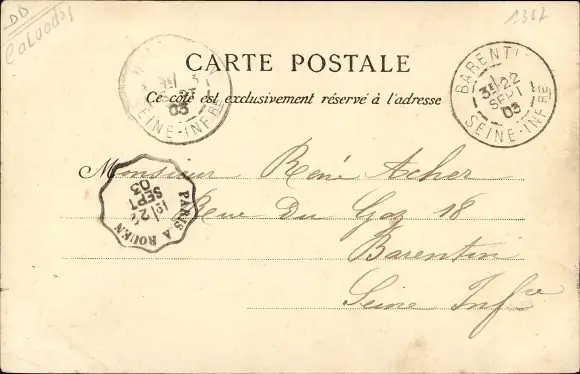 DD
1387
CARTE POSTALE
Ce côté est exclusivement réservé à l'adresse
BARENTIN
3E/22
SEPT
03
SEINE-INFRE
SEINE-INFRE
03
PARIS A ROUEN
SEPT
03
Monsieur René Acher
Rue Du Gaz 18
Barentin
Seine Infre